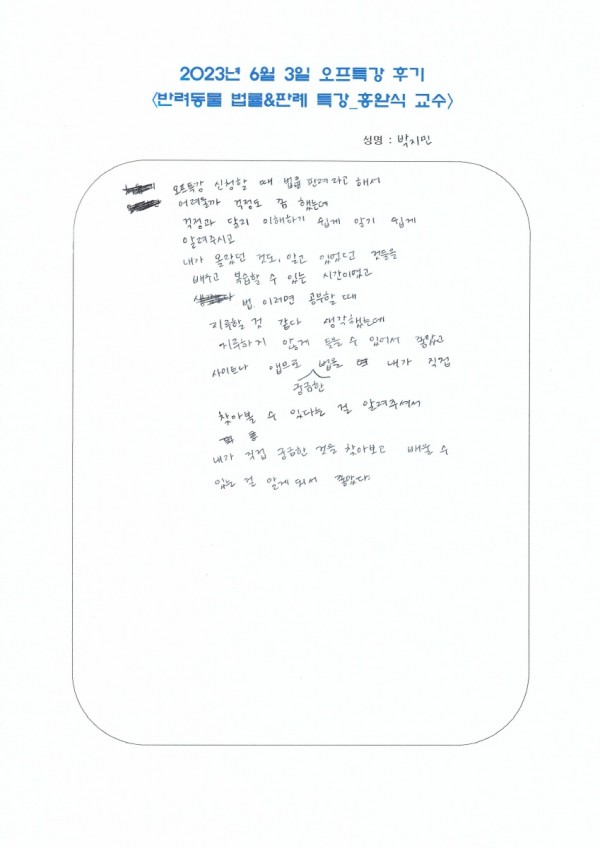 2023년 6월 3일 오프특강 후기
<반려동물 법률&판례 특강_홍완식 교수>
성명 : 박지민
오프특강 신청할 때 법률 판례라고 해서
어려울까 걱정도 꽤 했는데
걱정과 달리 이해하기 쉽게 알기 쉽게
알려주시고
내가 몰랐던 것도, 알고 있었던 것들을
배우고 복습할 수 있는 시간이었고
법 이러면 공부할 때
지루할 것 같다 생각했는데
지루하지 않게 들을 수 있어서 좋았고
사이트나 앱으로 법률 내가 직접
궁금한
찾아볼 수 있다는 걸 알려주셔서
내가 직접 궁금한 것을 찾아보고 배울 수
있는 걸 알게 되서 좋았다.